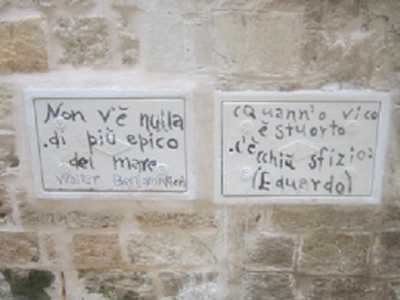 Non v'è nulla
di più epico
del mare
Walter Benjamin
(Quann'o vico
è stuorto
c'è cchiù sfizio)
(Eduardo)